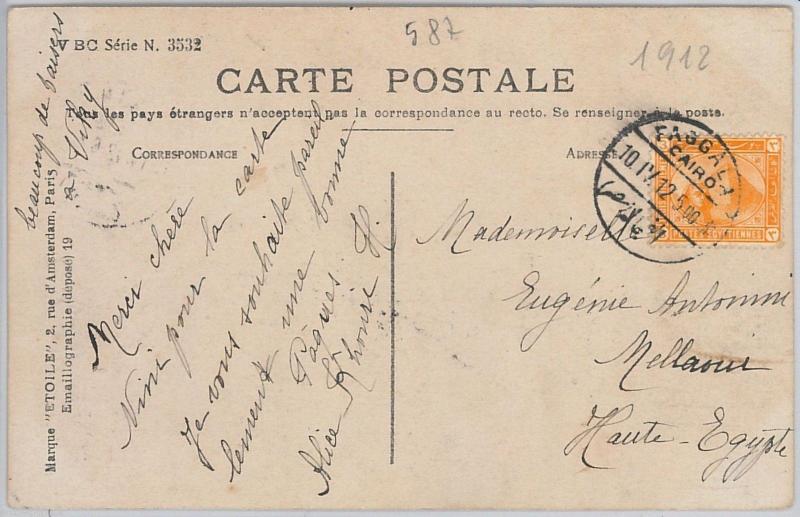 587
1912
VBC Série N. 3532
CARTE POSTALE
Tous les pays étrangers n'acceptent pas la correspondance au recto. Se renseigner à la poste.
CORRESPONDANCE
ADRESSE
beaucoup de baisers
à
Merci chère
Nini pour la carte
Je vous souhaite pareil
lement une bonne
Pâques.
Alice Khouri
Mademoiselle
Eugénie Antonini
Mellaoui
Haute-Egypte
FAGGALA
CAIRO
10.IV.12.5.00
Marque "ETOILE", 2, rue d'Amsterdam, Paris
Emaillographie (déposé) 19